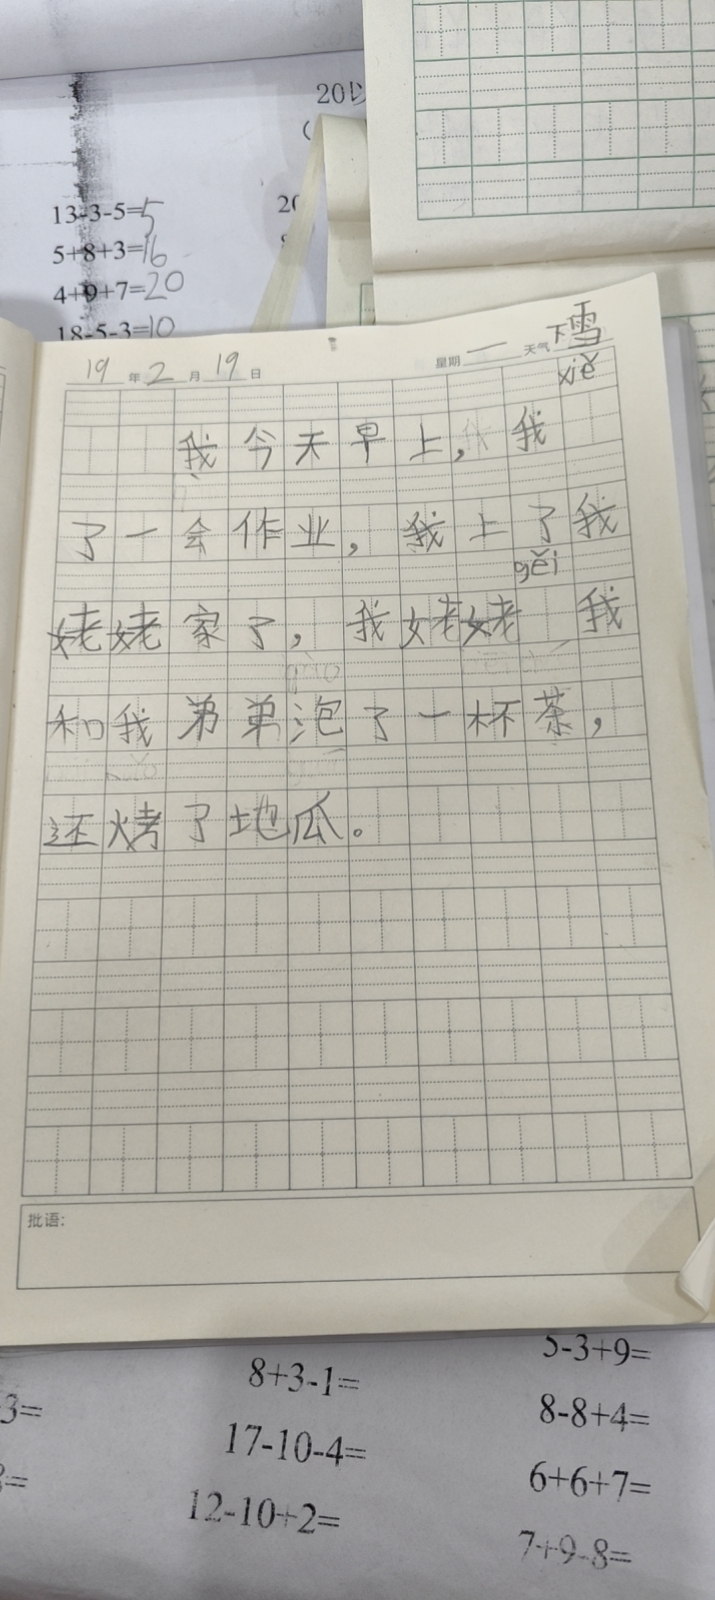 20以
(
13-3-5=5
20
5+8+3=16
4+9+7=20
18-5-3=10
19年2月19日 星期一 天气下雪
xiě
我今天早上，我
了一会作业，我上了我
gěi
姥姥家了，我姥姥 我
和我弟弟泡了一杯茶，
还烤了地瓜。
批语：
5-3+9=
8+3-1=
3=
8-8+4=
17-10-4=
6+6+7=
12-10+2=
7+9-8=